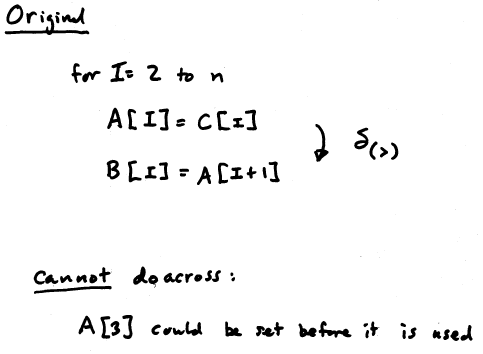 Original
for I= 2 to n
A[I]= C[I]
B[I] = A[I+1]
δ(>)
Cannot do across :
A[3] could be set before it is used